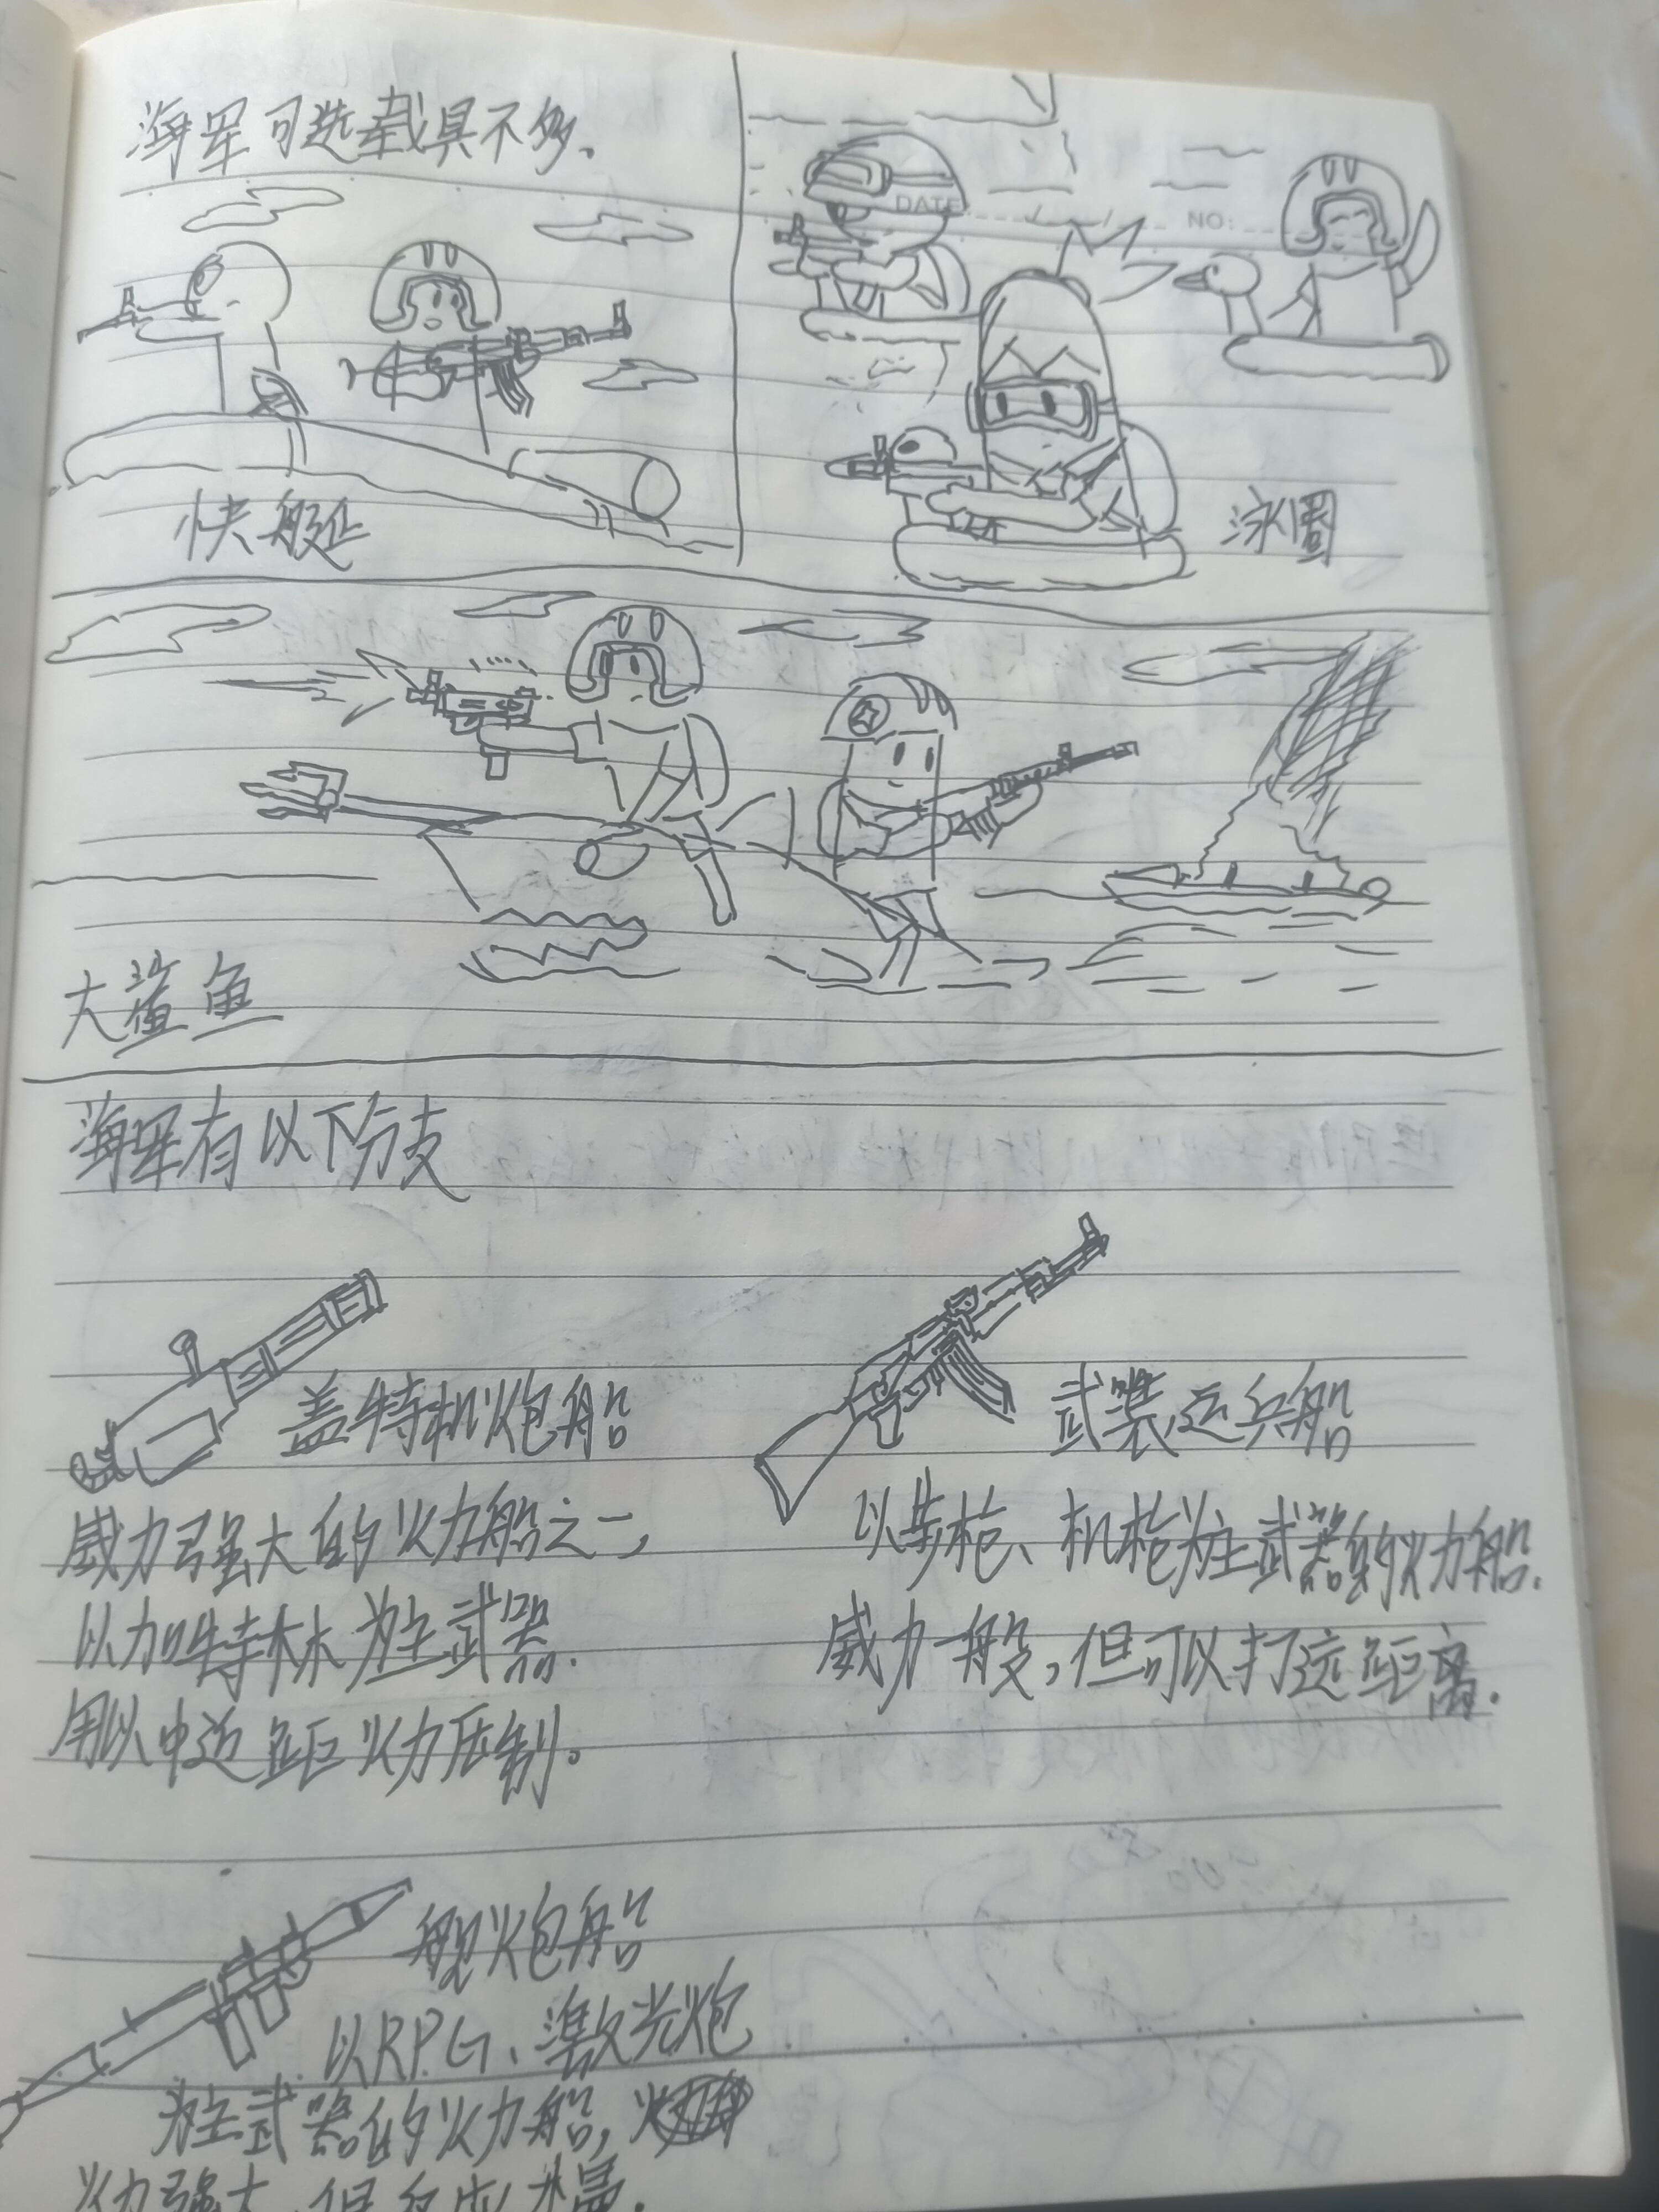 海军可选载具不多.
DATE
NO:
快艇
泳圈
大鲨鱼
海军有以下分支
盖特机炮船
威力强大的火力船之一,
以加特林为主武器.
用以中近距火力压制。
武装运兵船
以步枪、机枪为主武器的火力船.
威力一般,但可以打远距离.
舰炮船
以RPG、激光炮
为主武器的火力船,
火力强大,但